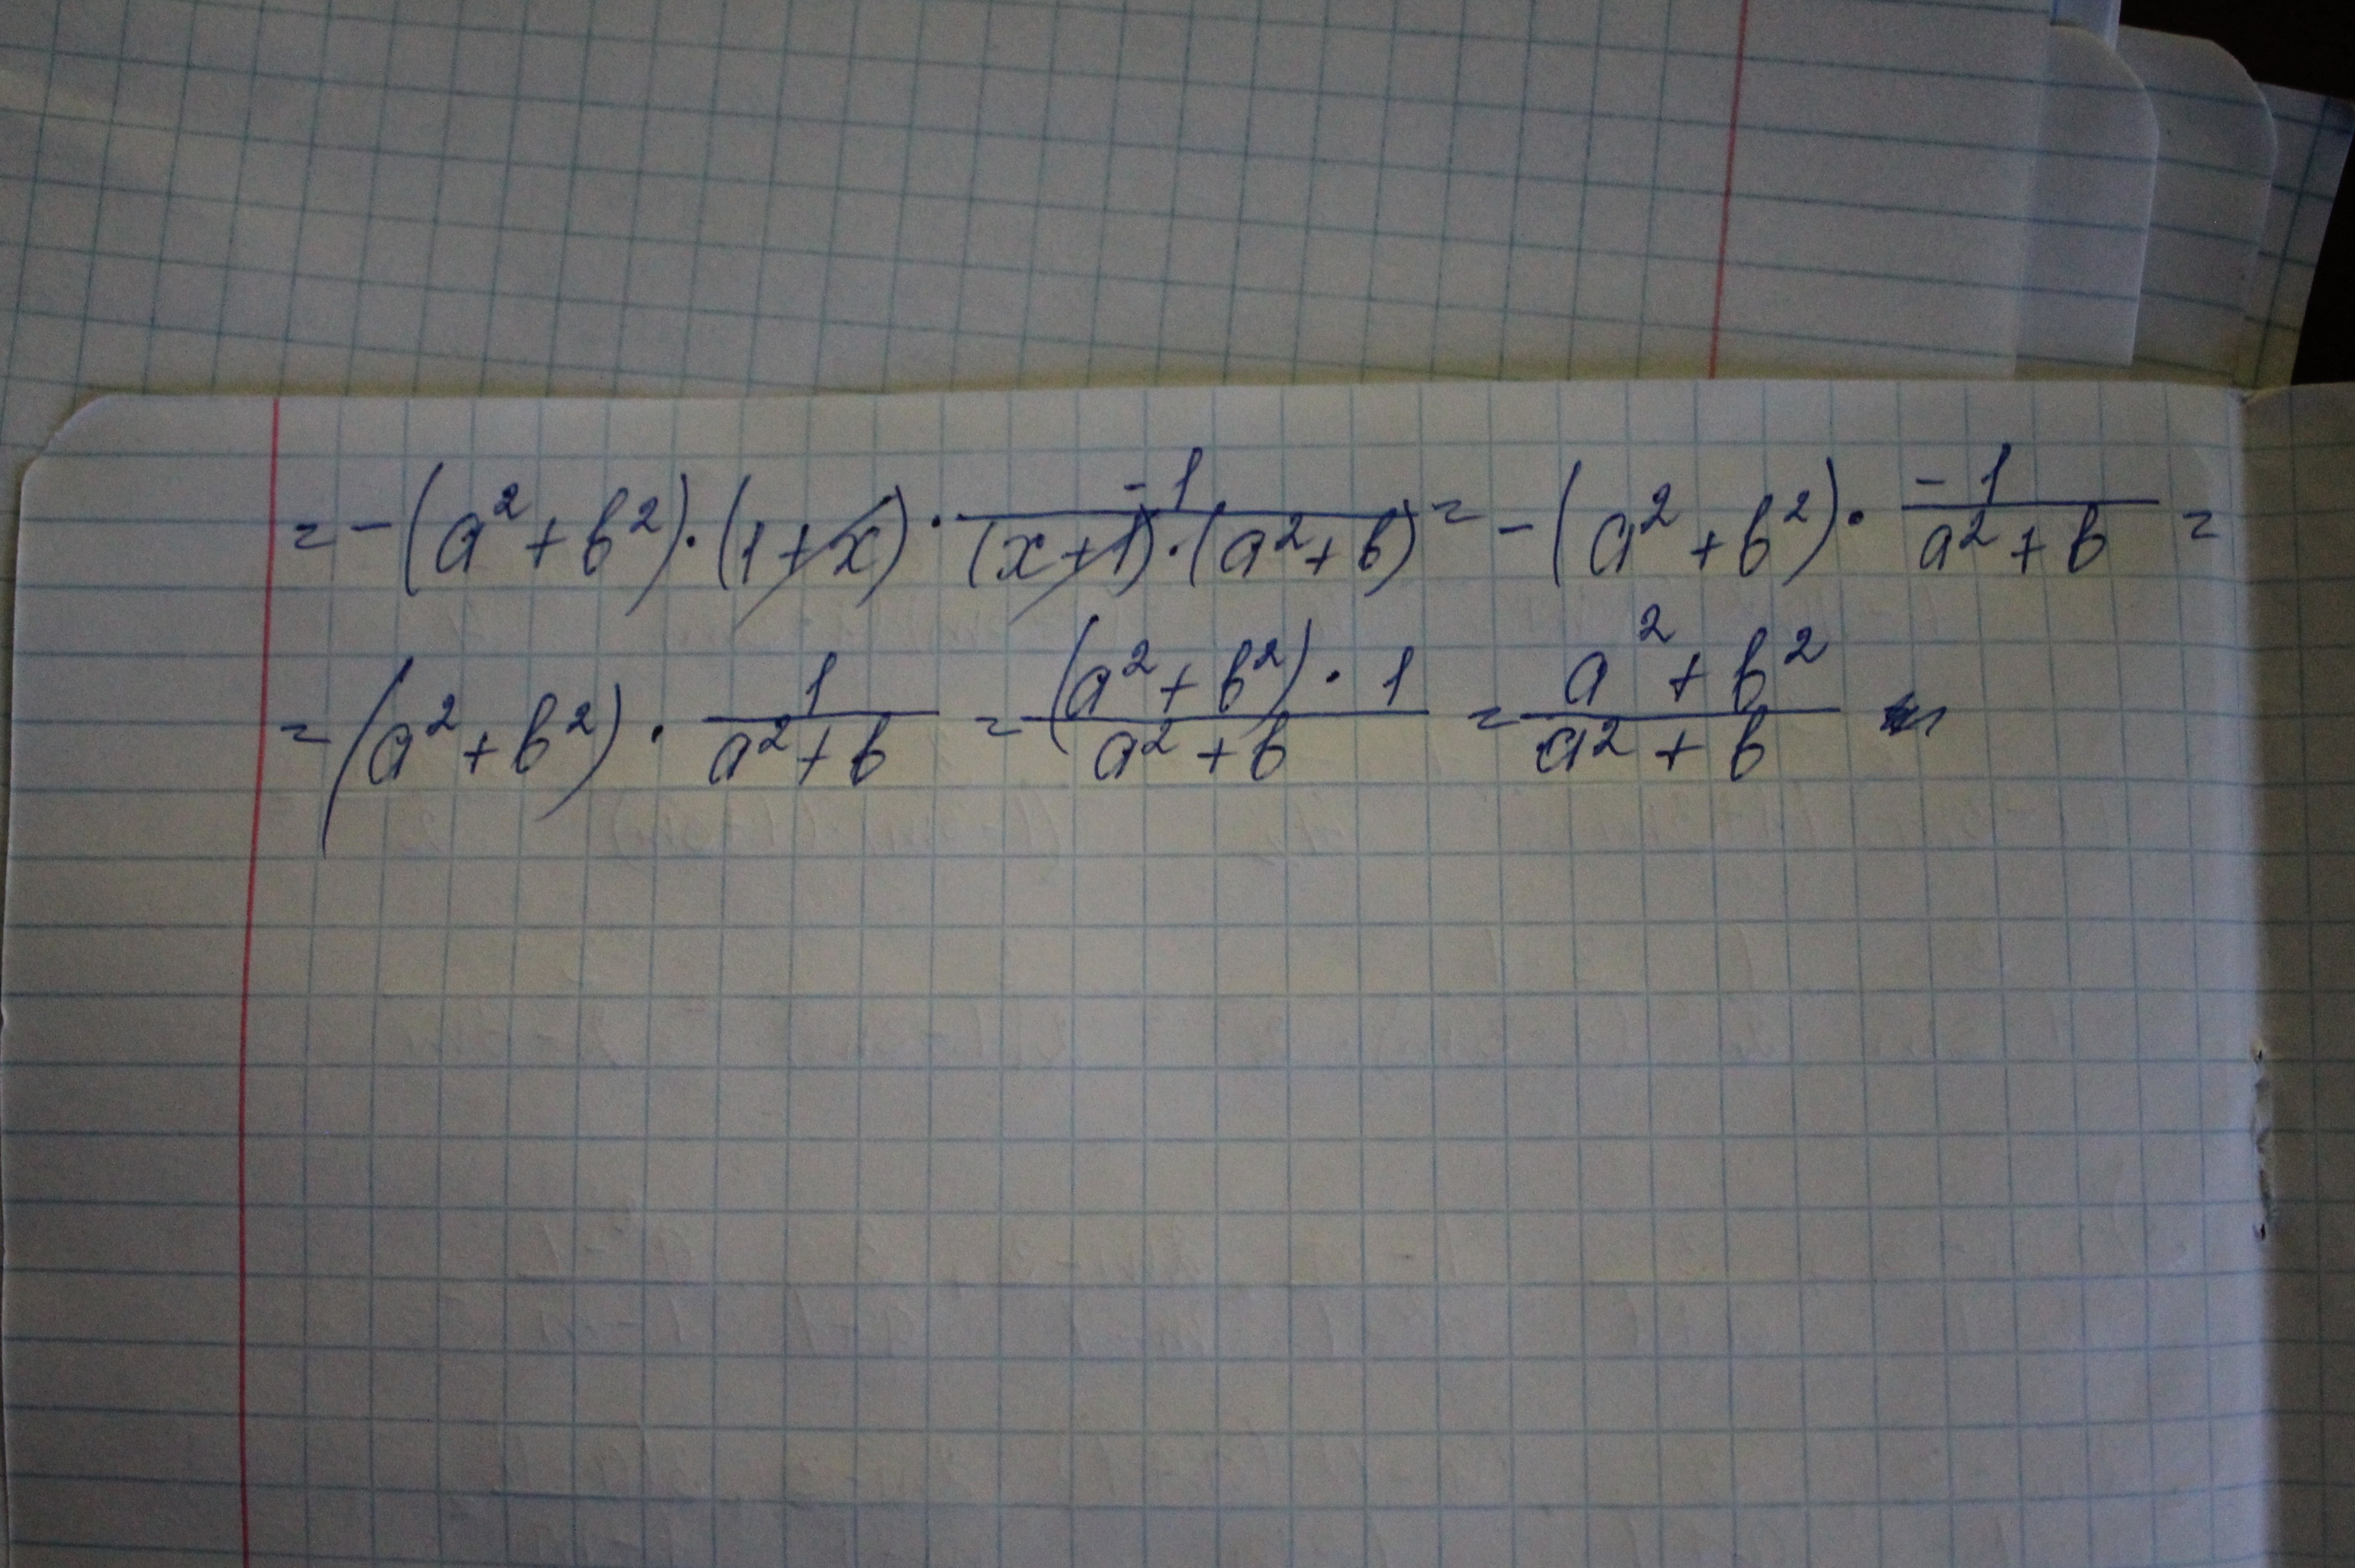 = -(a²+b²)·(1+x)·\frac{-1}{(x+1)·(a²+b)} = -(a²+b²)·\frac{-1}{a²+b} =
= (a²+b²)·\frac{1}{a²+b} = \frac{(a²+b²)·1}{a²+b} = \frac{a²+b²}{a²+b}